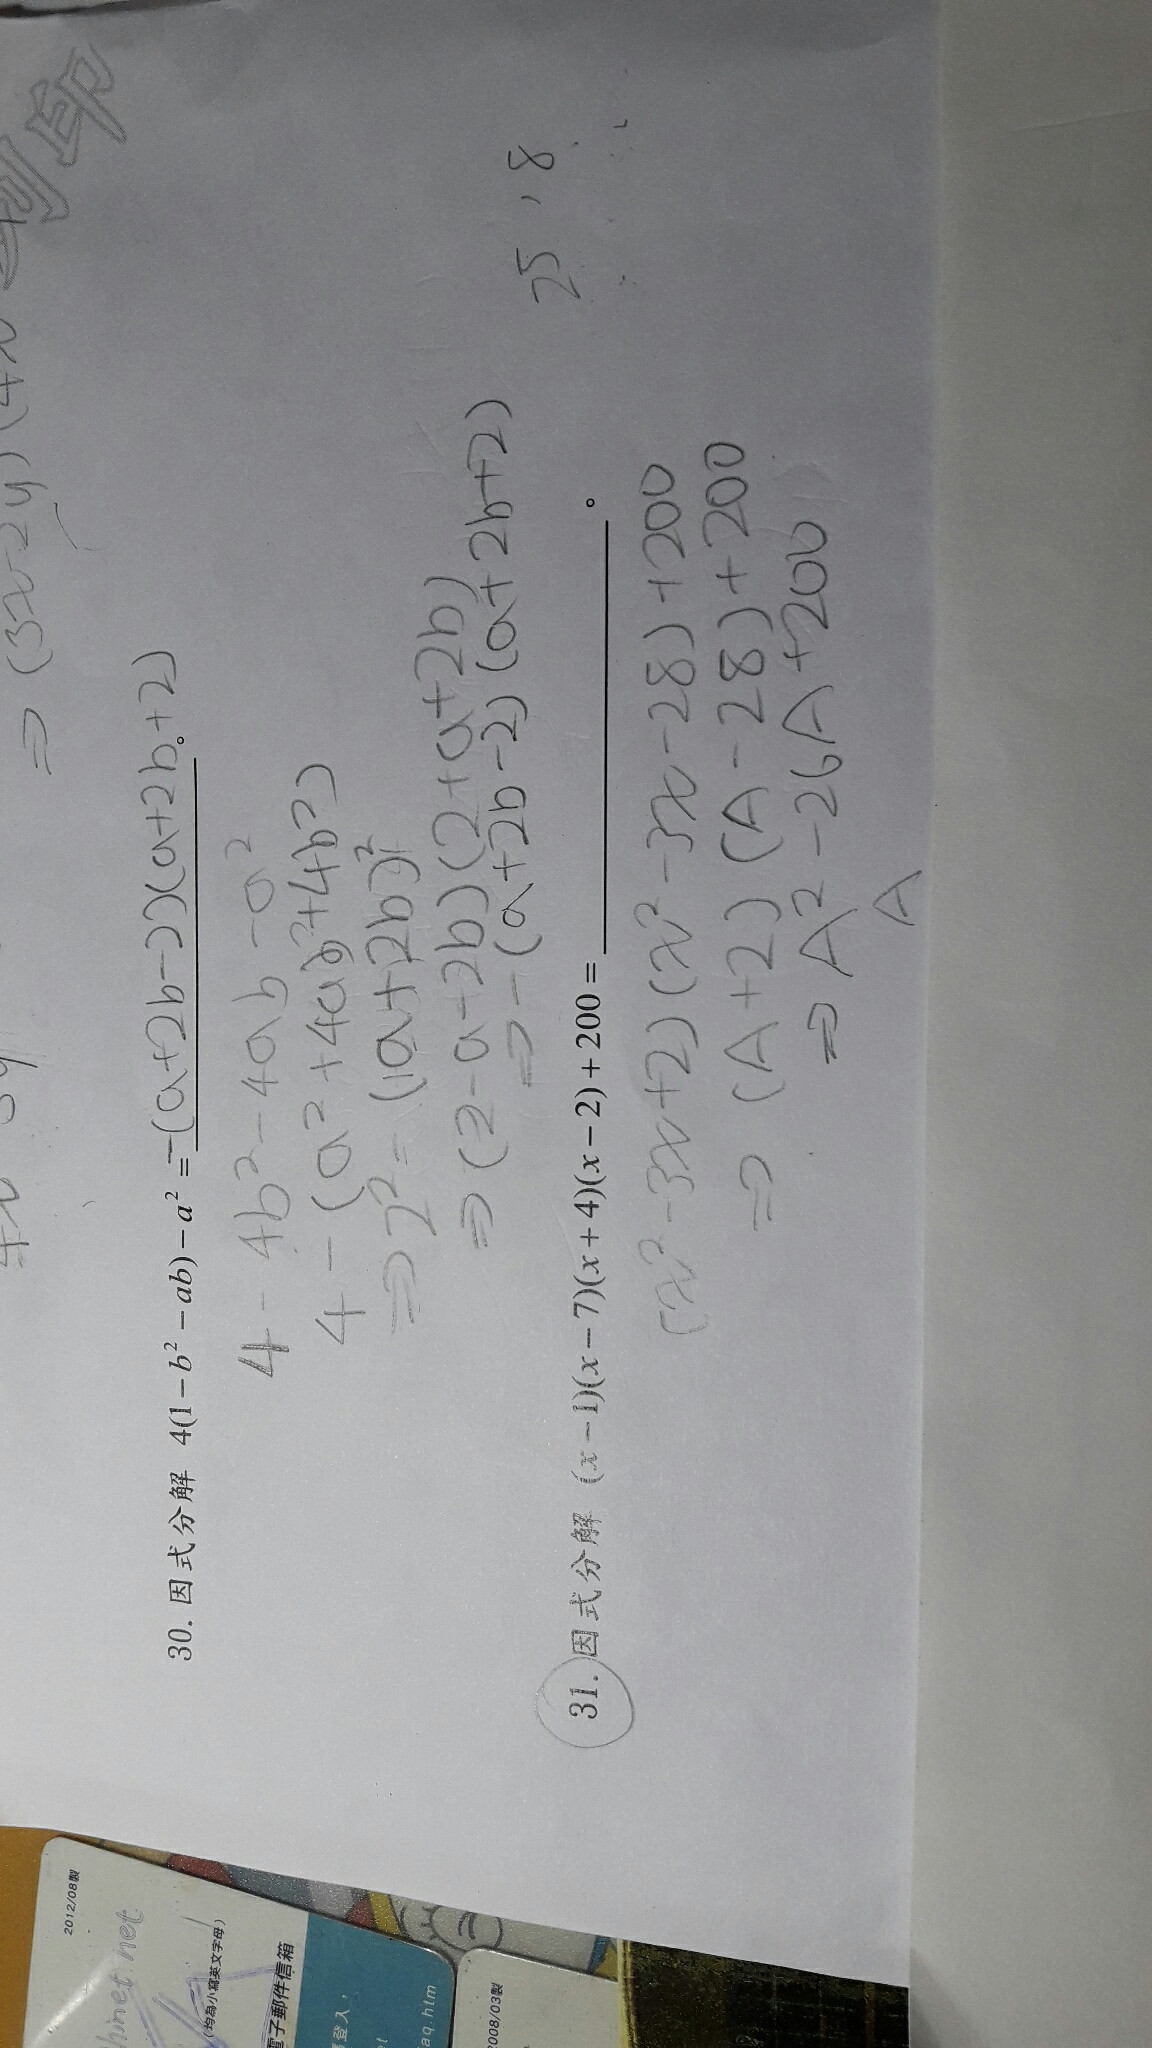 列印
⇒ (3x-2y)(4x
30. 因式分解 4(1-b²-ab)-a² = -(a+2b-2)(a+2b+2)。
4-4b²-4ab-a²
4-(a²+4ab+4b²)
⇒ 2²-(a+2b)²
⇒ (2-a-2b)(2+a+2b)
⇒ -(a+2b-2)(a+2b+2)
25, 8
31. 因式分解 (x-1)(x-7)(x+4)(x-2)+200 = 。
(x²-3x+2)(x²-3x-28)+200
⇒ (A+2)(A-28)+200
⇒ A²-26A+200
A
2012/08製
hinet.net
(均為小寫英文字母)
電子郵件信箱
登入，
et
aq.htm
2008/03製